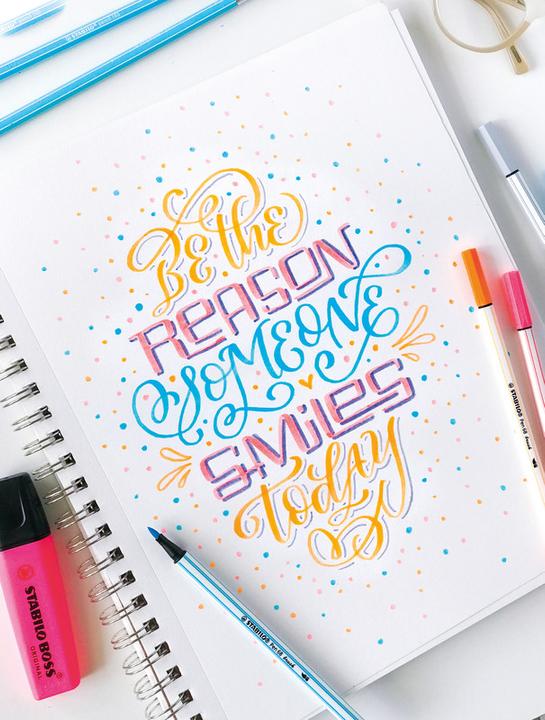 Be the
REASON
SOMEONE
SMiles
TODAY
STABILO BOSS
ORIGINAL
STABILO Pen 68
STABILO Pen 68